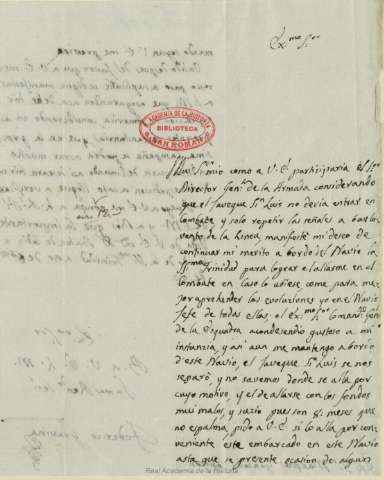 Ex.mo S.or
R. ACADEMIA DE LA HISTORIA
BIBLIOTECA
SAN ROMAN
Mui S.r mio como a V.E. participaria el S.or
Director Gen.l de la Armada considerando
que el Javeque S.n Luis no devia entrar en
combate y solo repetir las señales a barlo
vento de la Linea, manifesté mi deseo de
continuar mi merito a bordo del Navio la
SS.ma Trinidad para lograr el allarme en el
Combate en caso lo ubiese como para me
jor aprehender las evoluciones yo en el Navio
Jefe de todas ellas, el Ex.mo S.or Coman.te Gen.l
de la Esquadra acondesendió gustoso a mi
instancia, y an' aun me mantengo a bordo
d'este Navio, el Javeque S.n Luis se nos
separó, y no savemos donde se alla por
cuyo motivo, y el de allarse con los fondos
mui malos, y suzio pues son 8. meses que
no espalma pido a V.E. si lo alla por con
veniente este embarcado en este Navio
asta que se presente ocasion de algun
Real Academia de la Historia